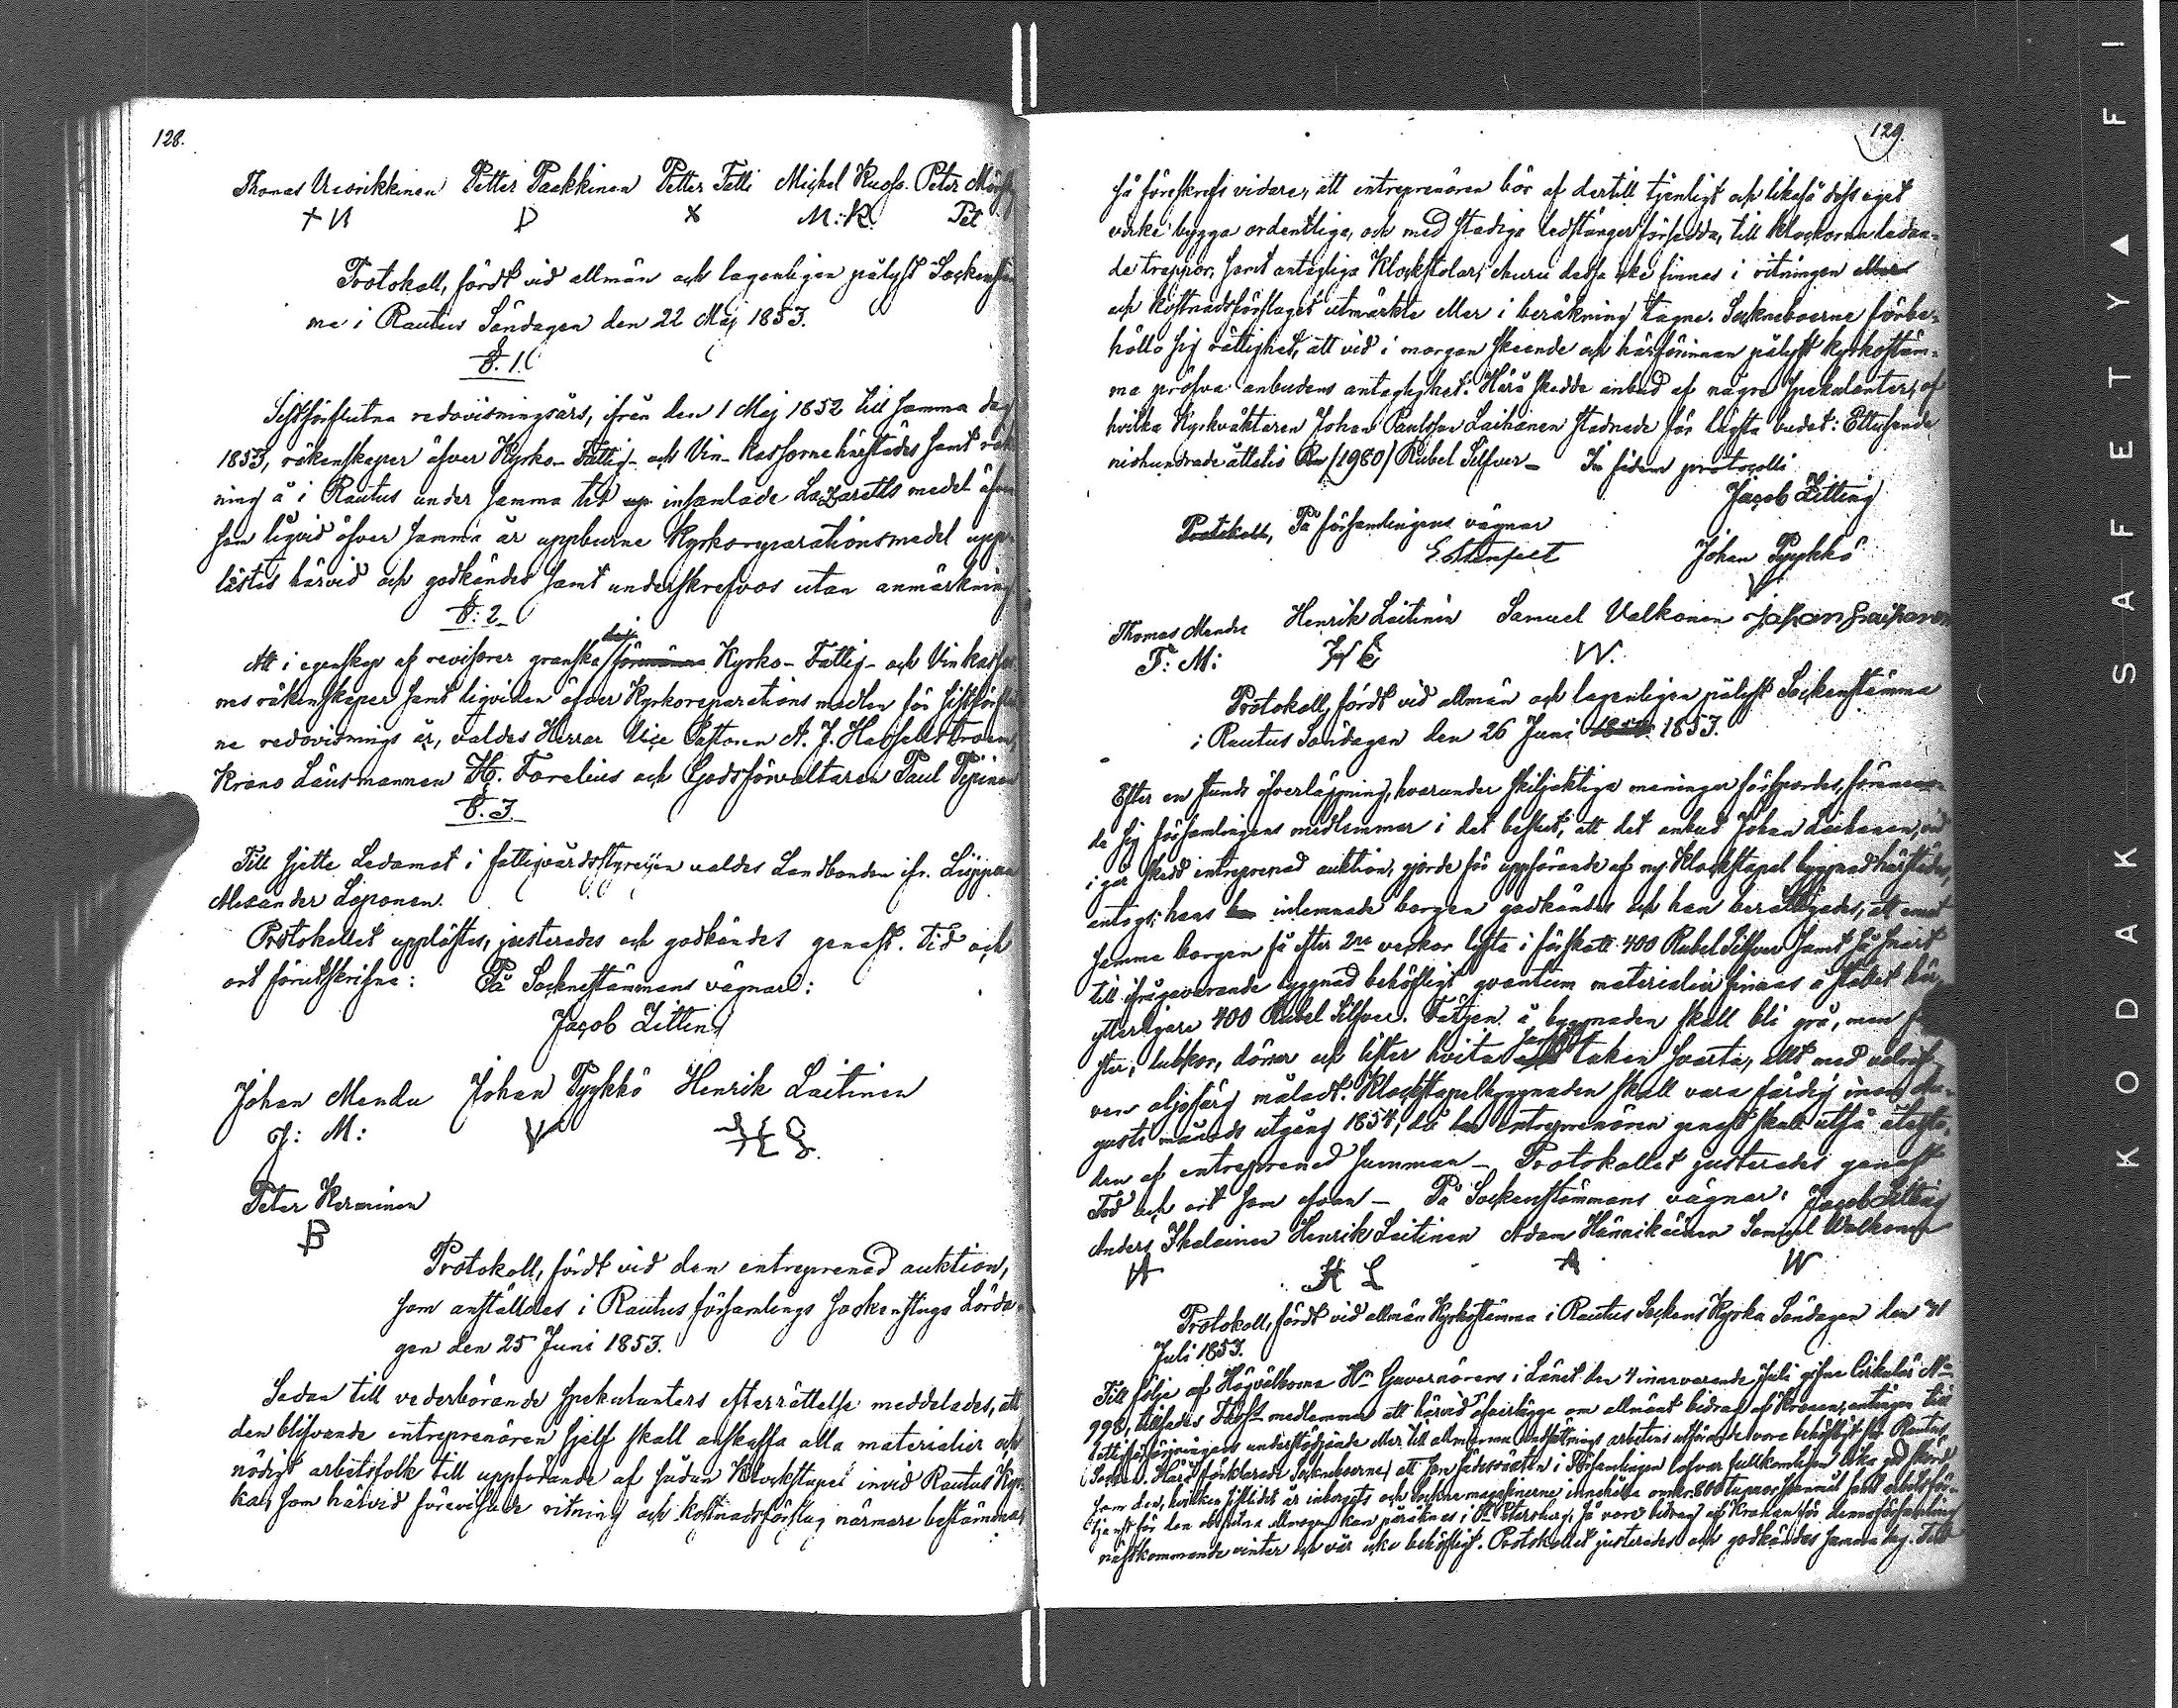 128.
Thomas Uusikkinen Petter Paakkinen Petter Tetti Michel Kuoso. Peter
+ U P x M: K. Pet
Protokoll, fördt vid allmän och lagenligen pålyst Sockenstäm
ma i Rautus Söndagen den 22 Maj 1853.
§. 1.
Sistförflutna redovisningsårs, ifrån den 1 Maj 1852 till samma dag
1853, räkenskaper öfver Kyrko- Fattig- och Vin- kassorna härstädes samt räk
ning å i Rautus under samma tid insamlade Lazaretts medel äfven
som liqvid öfver samma år uppburne Kyrkoreparationsmedel upp
lästes härvid och godkändes samt underskrefvos utan anmärkning
§: 2
Att i egenskap af revisorer granska Kyrko- Fattig- och Vinkassor
nes räkenskaper samt liqviden öfver Kyrkoreparations medlen för sistförflut
ne redovisnings år, valdes Herrar Vice Pastoren A. J. Hasselström,
Krono Länsmannen H. Forelius och Godsförvaltaren Paul Pipinen
§. 3.
Till sjette Ledamot i fattigvårdsstyrelsen valdes Landbonden ifr. Lippola
Alexander Loponen.
Protokollet upplästes, justerades och godkändes genast. Tid och
ort förutskrifne: På Sockenstämmans vägnar:
Jacob Zitting
Johan Mendu Johan Pyykkö Henrik Laitinen
J: M: V H L.
Peter Kerminen
B
Protokoll, fördt vid den entreprenad auktion,
som anställdes i Rautus församlings sockenstuga Lörda-
gen den 25 Juni 1853.
Sedan till vederbörande spekulanters efterrättelse meddelades, att
den blifvande entreprenören sjelf skall anskaffa alla materialier och
nödigt arbetsfolk till uppförande af sådan Klockstapel invid Rautus Kyr-
ka, som härvid förevisade ritning och kostnadsförslag närmare bestämma,
129.
så föreskrefs vidare, att entreprenören bör af dertill tjenligt och likaså dess eget
virke bygga ordentliga, och med stadiga ledstänger försedda, till Klockorna ledan-
de trappor, samt antagliga Klockstolar, ehuru dessa icke finnas i ritningen eller
och kostnadsförslaget utmärkte eller i beräkning tagne. Sockneboerne förbe-
höllo sig rättighet, att vid i morgon skeende och härförinnan pålyst kyrkostäm-
ma pröfva anbudens antaglighet. Härå skedde anbud af några spekulanter, af
hvilka Kyrkväktaren Johan Paulsson Laihanen stadnade för lägsta budet: Ettusende
niohundrade åttatio (1980) Rubel Silfver— In fidem protocolli
Jacob Zitting
Protokoll, På församlingens vägnar
Johan Pyykkö
V
Thomas Mendu Henrik Laitinen Samuel Valkonen Johan Laihanen
T: M: H L W.
Protokoll, fördt vid allmän och lagenligen pålyst Sockenstämma
i Rautus Söndagen den 26 Juni 1853.
Efter en stunds öfverläggning, hvarunder skiljaktiga meningar försports, förena-
de sig församlingens medlemmar i det beslut, att det anbud Johan Laihanen, vid
i går skedd entreprenad auktion, gjorde för uppförande af ny Klockstapel byggnad härstädes,
antogs; hans inlemnade borgen godkändes och han berättigades, att emot
samma borgen få efter 2ne veckor lyfta i förskott 400 Rubel Silfver samt så snart
till ifrågavarande byggnad behöfligt qvantum materialier finnas å stället här,
ytterligare 400 Rubel Silfver. Färgen å byggnaden skall bli grå, men fön
ster, luckor, dörrar och lister hvita samt taken svarta, allt med välrif-
ven oljofärg måladt. Klockstapelbyggnaden skall vara färdig inom Au-
gusti månads utgång 1854, då entreprenören genast skall utfå återsto-
den af entreprenad summan— Protokollet justerades genast
Tid och ort som ofvan— På Sockenstämmans vägnar: Jacob Zitting
Anders Ikalainen Henrik Laitinen Adam Hännikäinen Samuel Walkonen
A H L A W
Protokoll, fördt vid allmän Kyrkostämma i Rautus Sockens Kyrka Söndagen den 31
Juli 1853.
Till följe af Högvälborne Hr Guvernörens i Länet den 4 innevarande Juli gifne Cirkulär No
998, tillsades medlemmar att härvid öfverlägga om allmänt bidrag af Kronan, antingen till
fattigförsörjningens understödjande eller till allmänna arbetens utförande vore behöfligt för Rautus
Socken. Härå förklarade Sockneboerne, att som sädesväxten i Församlingen lofvar fullkomligen lika god skörd
som den, hvilken sistlidet år inbergats och Sockne magasinerne innehålla omkr. 800 tunnor spannmål samt arbetsför-
tjenst för den obesutna allmogen kan påräknas i St Petersburg, så vore bidrag af Kronan för denna församling
nästkommande vinter och vår icke behöfligt. Protokollet justerades och godkändes samma dag. Tid
KODAK SAFETY ▲ FI